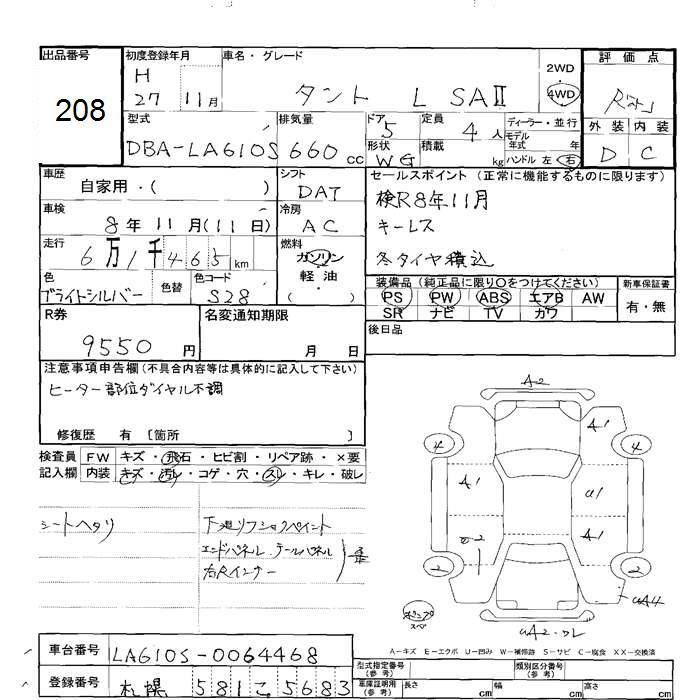 出品番号 初度登録年月 車名・グレード 2WD 評価点
208 H 27 11月 タント L SAⅡ 4WD
型式 排気量 ドア 定員 ディーラー・並行 外装 内装
DBA-LA610S 660cc 5 4人 モデル年式 年 D C
形状 WG 積載 kg ハンドル 左 右
車歴 シフト セールスポイント(正常に機能するものに限ります)
自家用・( ) DAT 検R8年11月
車検 冷房 キーレス
8年11月(11日) AC 冬タイヤ積込
走行 燃料
6万1千465km ガソリン
軽油
( )
色 色替 色コード 装備品(純正品に限り○をつけてください) 新車保証書
ブライトシルバー S28 PS PW ABS エアB AW 有・無
SR ナビ TV カワ
R券 名変通知期限 後日品
9550円 月 日
注意事項申告欄(不具合内容等は具体的に記入して下さい)
ヒーター部位ダイヤル不調
修復歴 有 〔箇所 〕
検査員 FW キズ・飛石・ヒビ割・リペア跡・×要
記入欄 内装 キズ・汚レ・コゲ・穴・スレ・キレ・破レ
シートヘタリ 下廻リフショクペイント
エンドパネル.テールパネル
右Rインナー
A2
4 A1 4
A1 U1
A1
2 2
UA4
A2
A-キズ E-エクボ U-凹み W-補修跡 S-サビ C-腐食 XX-交換済
車台番号 LA610S-0064468 型式指定番号(参考) 類別区分番号(参考)
登録番号 札幌 581 こ 5683 車庫証明用(参考) 長さ cm 幅 cm 高さ cm